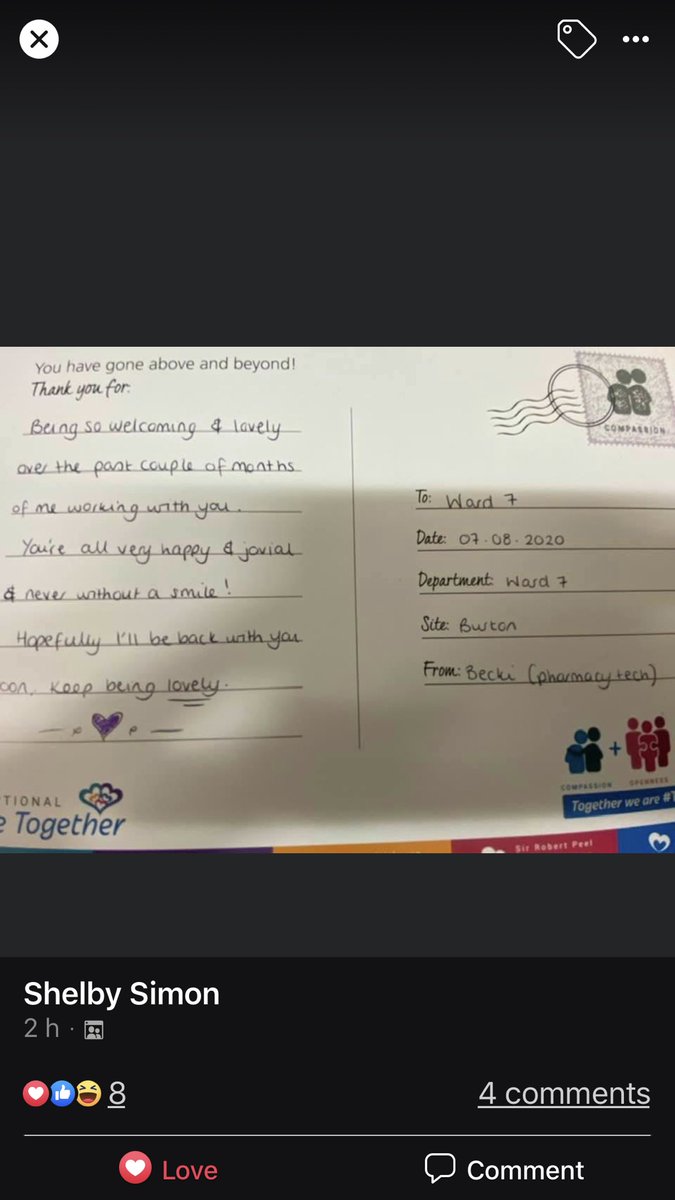 You have gone above and beyond!
Thank you for:
Being so welcoming & lovely
over the past couple of months
of me working with you.
You're all very happy & jovial
& never without a smile!
Hopefully I'll be back with you
oon. Keep being lovely.
COMPASSION
To: Ward 7
Date: 07.08.2020
Department: Ward 7
Site: Burton
From: Becki (pharmacy tech)
TIONAL
e Together
+
COMPASSION OPENNESS
Together we are #T
Sir Robert Peel
Shelby Simon
2 h ·
8
4 comments
Love
Comment